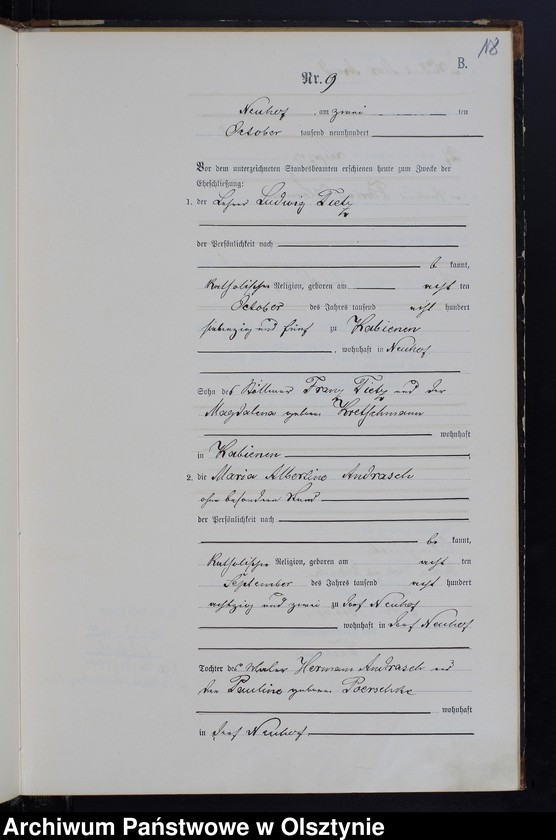 18
B.
Nr. 9
Neuhof, am zwei ten
October tausend neunhundert
Vor dem unterzeichneten Standesbeamten erschienen heute zum Zwecke der
Eheschließung:
1. der Lehrer Ludwig Tietz
der Persönlichkeit nach
be kannt,
katholischer Religion, geboren am acht ten
October des Jahres tausend acht hundert
siebenzig und fünf zu Kabienen
, wohnhaft in Neuhof
Sohn des Köllmer Franz Tietz und der
Magdalena geborene Kretschmann
wohnhaft
in Kabienen
2. die Maria Albertine Andrasch
ohne besonderen Stand
der Persönlichkeit nach
be kannt,
katholischer Religion, geboren am acht ten
September des Jahres tausend acht hundert
achtzig und zwei zu Dorf Neuhof
wohnhaft in Dorf Neuhof
Tochter des Maler Hermann Andrasch und
der Pauline geborene Poerschke
wohnhaft
in Dorf Neuhof
Archiwum Państwowe w Olsztynie